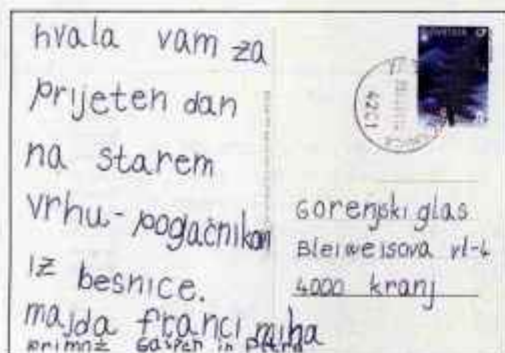 hvala vam za
prijeten dan
na starem
vrhu - pogačnikovi
iz besnice.
majda franci miha
primož Gašper in
4201
Gorenjski glas
Bleiweisova
4000 kranj